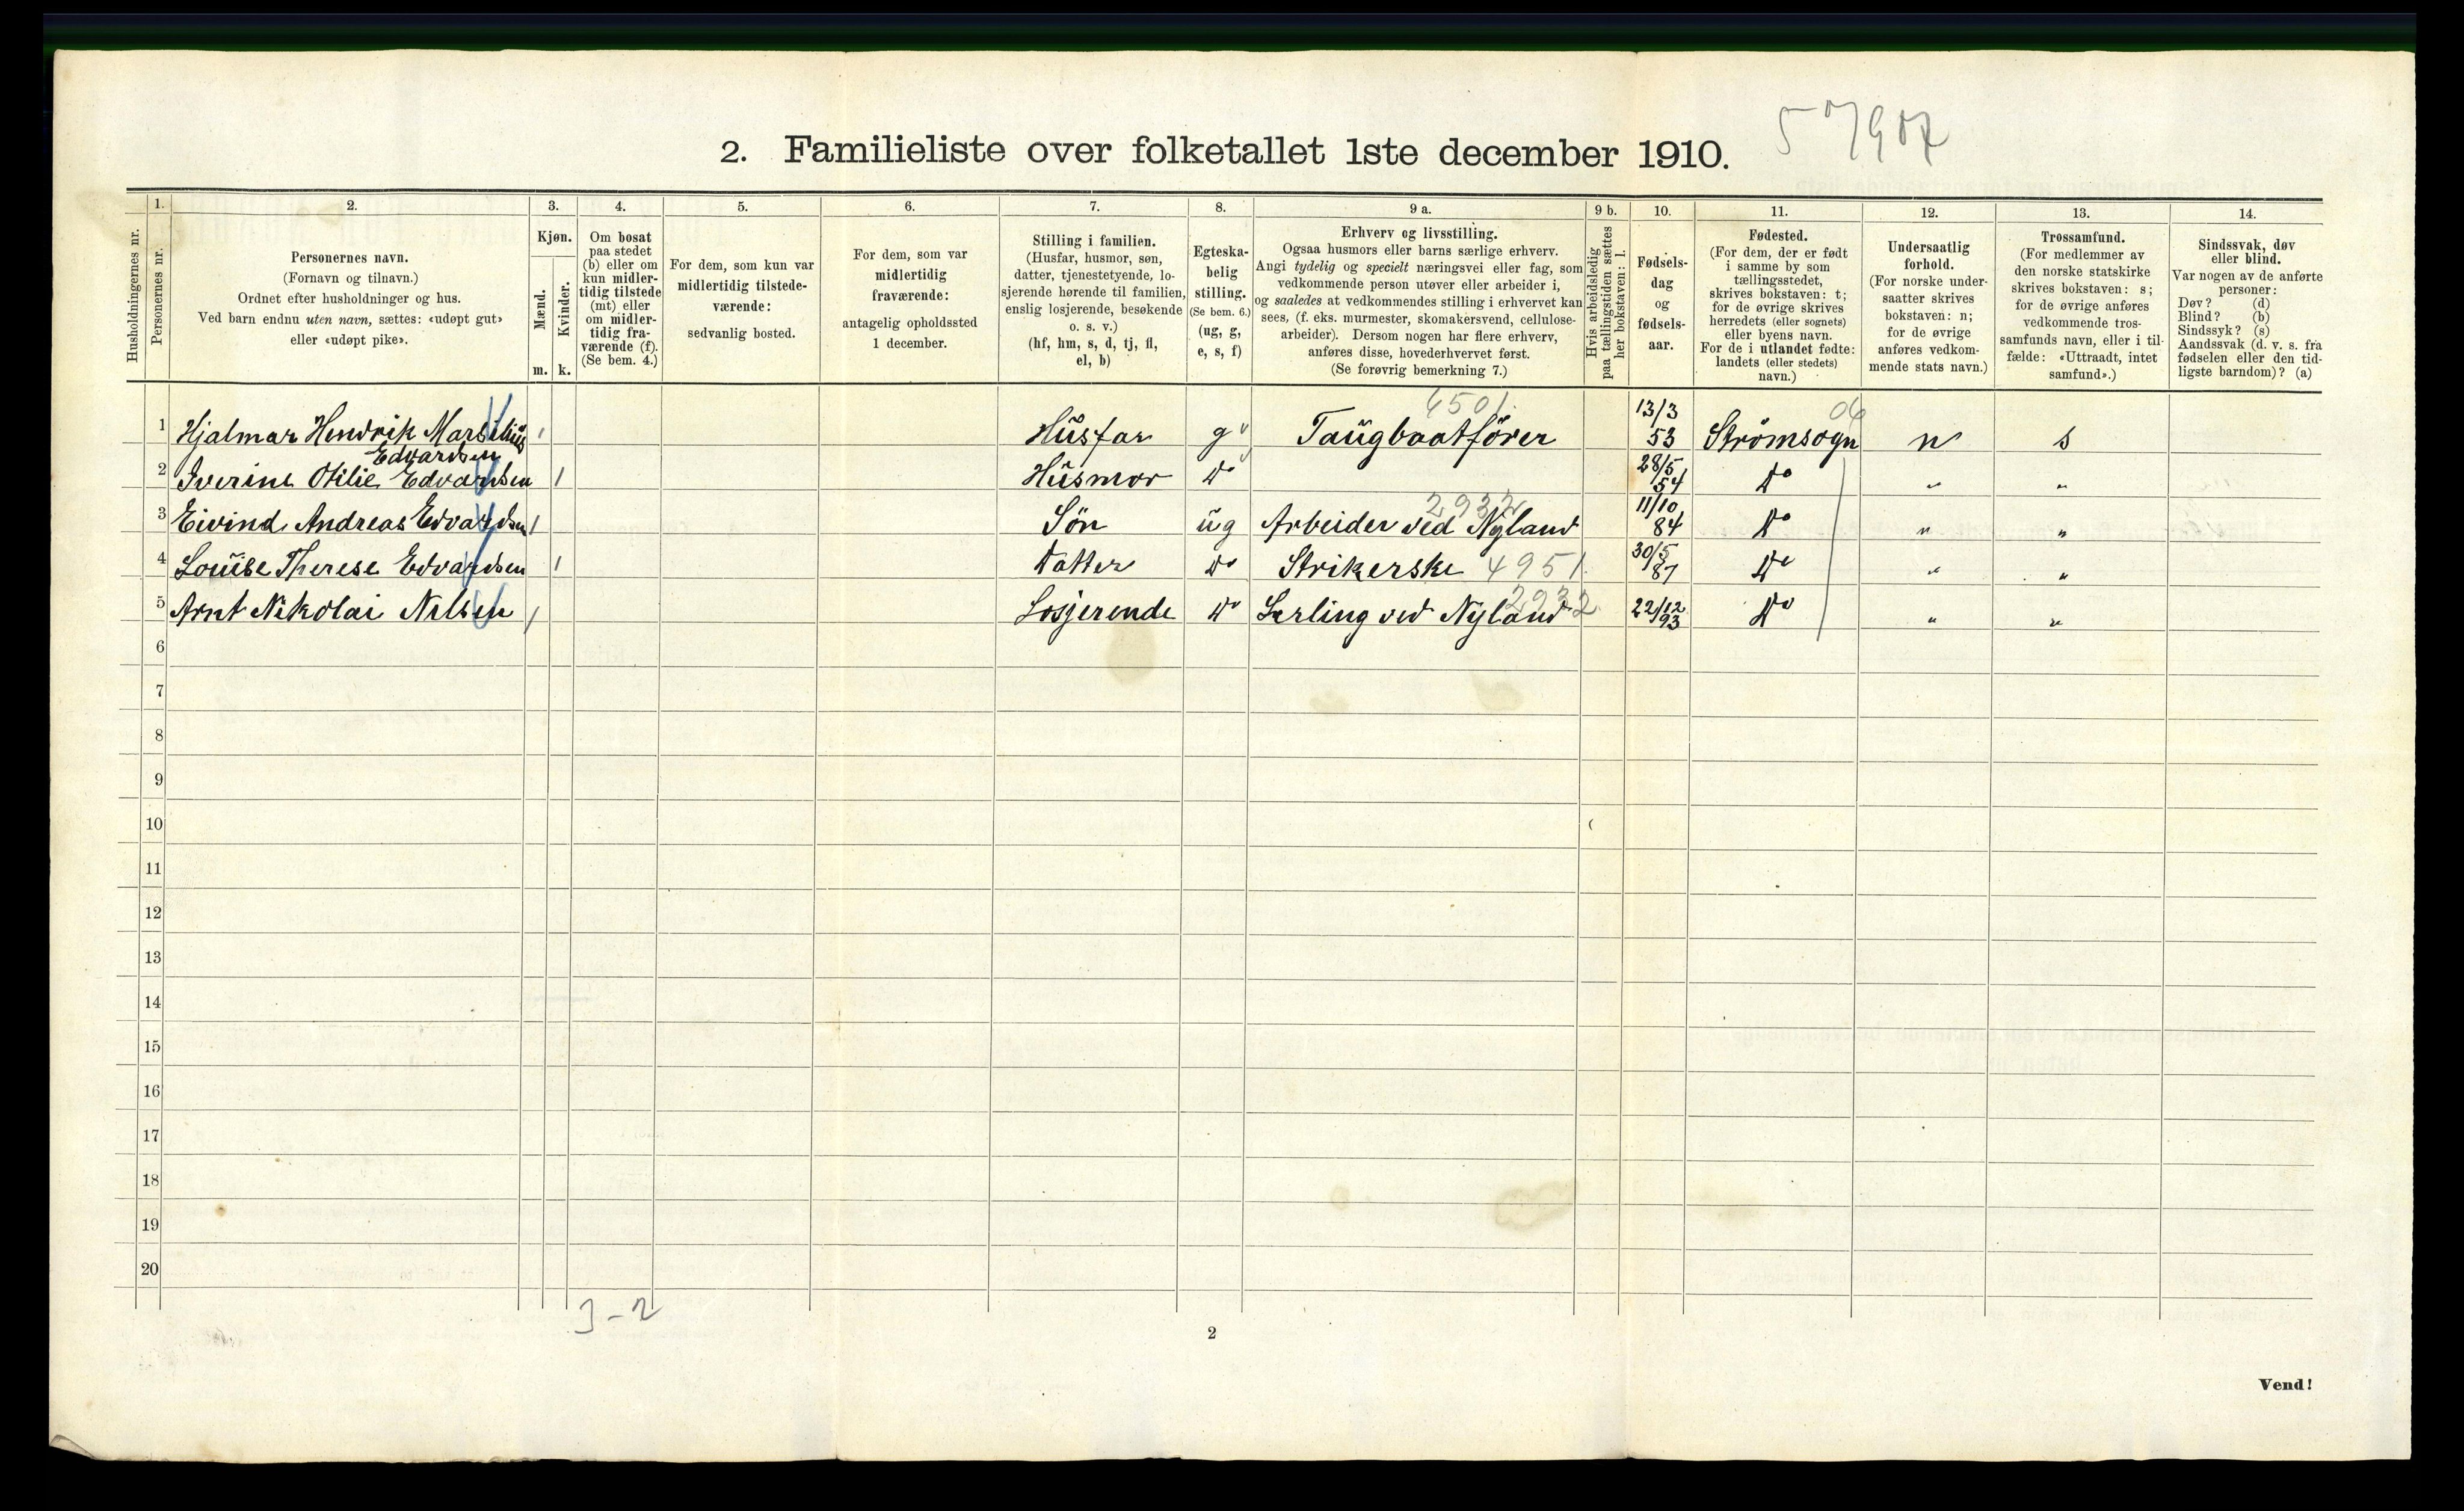 2. Familieliste over folketallet 1ste december 1910.
57907
1. 2. 3. 4. 5. 6. 7. 8. 9 a. 9 b. 10. 11. 12. 13. 14.
Husholdningernes nr.
Personernes nr.
Personernes navn.
(Fornavn og tilnavn.)
Ordnet efter husholdninger og hus.
Ved barn endnu uten navn, sættes: «udøpt gut»
eller «udøpt pike».
Kjøn.
Mænd.
Kvinder.
m. k.
Om bosat
paa stedet
(b) eller om
kun midler-
tidig tilstede
(mt) eller
om midler-
tidig fra-
værende (f).
(Se bem. 4.)
For dem, som kun var
midlertidig tilstede-
værende:
sedvanlig bosted.
For dem, som var
midlertidig
fraværende:
antagelig opholdssted
1 december.
Stilling i familien.
(Husfar, husmor, søn,
datter, tjenestetyende, lo-
sjerende hørende til familien,
enslig losjerende, besøkende
o. s. v.)
(hf, hm, s, d, tj, fl,
el, b)
Egteska-
belig
stilling.
(Se bem. 6.)
(ug, g,
e, s, f)
Erhverv og livsstilling.
Ogsaa husmors eller barns særlige erhverv.
Angi tydelig og specielt næringsvei eller fag, som
vedkommende person utøver eller arbeider i,
og saaledes at vedkommendes stilling i erhvervet kan
sees, (f. eks. murmester, skomakersvend, cellulose-
arbeider). Dersom nogen har flere erhverv,
anføres disse, hovederhvervet først.
(Se forøvrig bemerkning 7.)
Hvis arbeidsledig
paa tællingstiden sættes
her bokstaven: l.
Fødsels-
dag
og
fødsels-
aar.
Fødested.
(For dem, der er født
i samme by som
tællingsstedet,
skrives bokstaven: t;
for de øvrige skrives
herredets (eller sognets)
eller byens navn.
For de i utlandet fødte:
landets (eller stedets)
navn.)
Undersaatlig
forhold.
(For norske under-
saatter skrives
bokstaven: n;
for de øvrige
anføres vedkom-
mende stats navn.)
Trossamfund.
(For medlemmer av
den norske statskirke
skrives bokstaven: s;
for de øvrige anføres
vedkommende tros-
samfunds navn, eller i til-
fælde: «Uttraadt, intet
samfund».)
Sindssvak, døv
eller blind.
Var nogen av de anførte
personer:
Døv? (d)
Blind? (b)
Sindssyk? (s)
Aandssvak (d. v. s. fra
fødselen eller den tid-
ligste barndom)? (a)
6501. 06
1 Hjalmar Hendrik Marsilius Edvardsen 1 Husfar g Taugbaatfører 13/3 53 Strømsogn n s
2 Iverine Otilie Edvardsen 1 Husmor Do 28/5 54 Do " "
3 Eivind Andreas Edvardsen 1 Søn ug Arbeider ved Nyland 2932 11/10 84 Do " "
4 Louise Therese Edvardsen 1 Datter Do Strikerske 4951. 30/5 87 Do " "
5 Arnt Nikolai Nilsen 1 Losjerende Do Lærling ved Nyland 2932 22/12 93 Do " "
6
7
8
9
10
11
12
13
14
15
16
17
18
19
20
3-2
2
Vend!